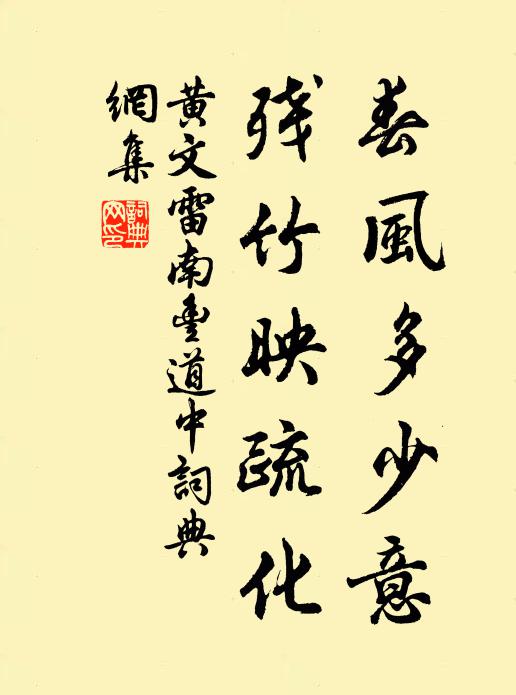 春風多少意
残竹映疏化
黃文雷南豊道中詞典
網集
詞典
网印